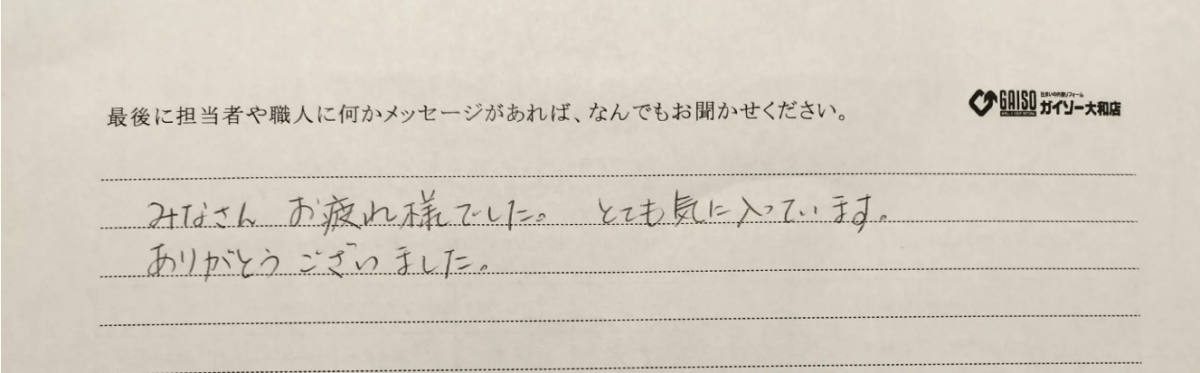 最後に担当者や職人に何かメッセージがあれば、なんでもお聞かせください。
GAISO
住まいの外装リフォーム
ガイソー大和店
みなさん お疲れ様でした。 とても気に入っています。
ありがとう ございました。